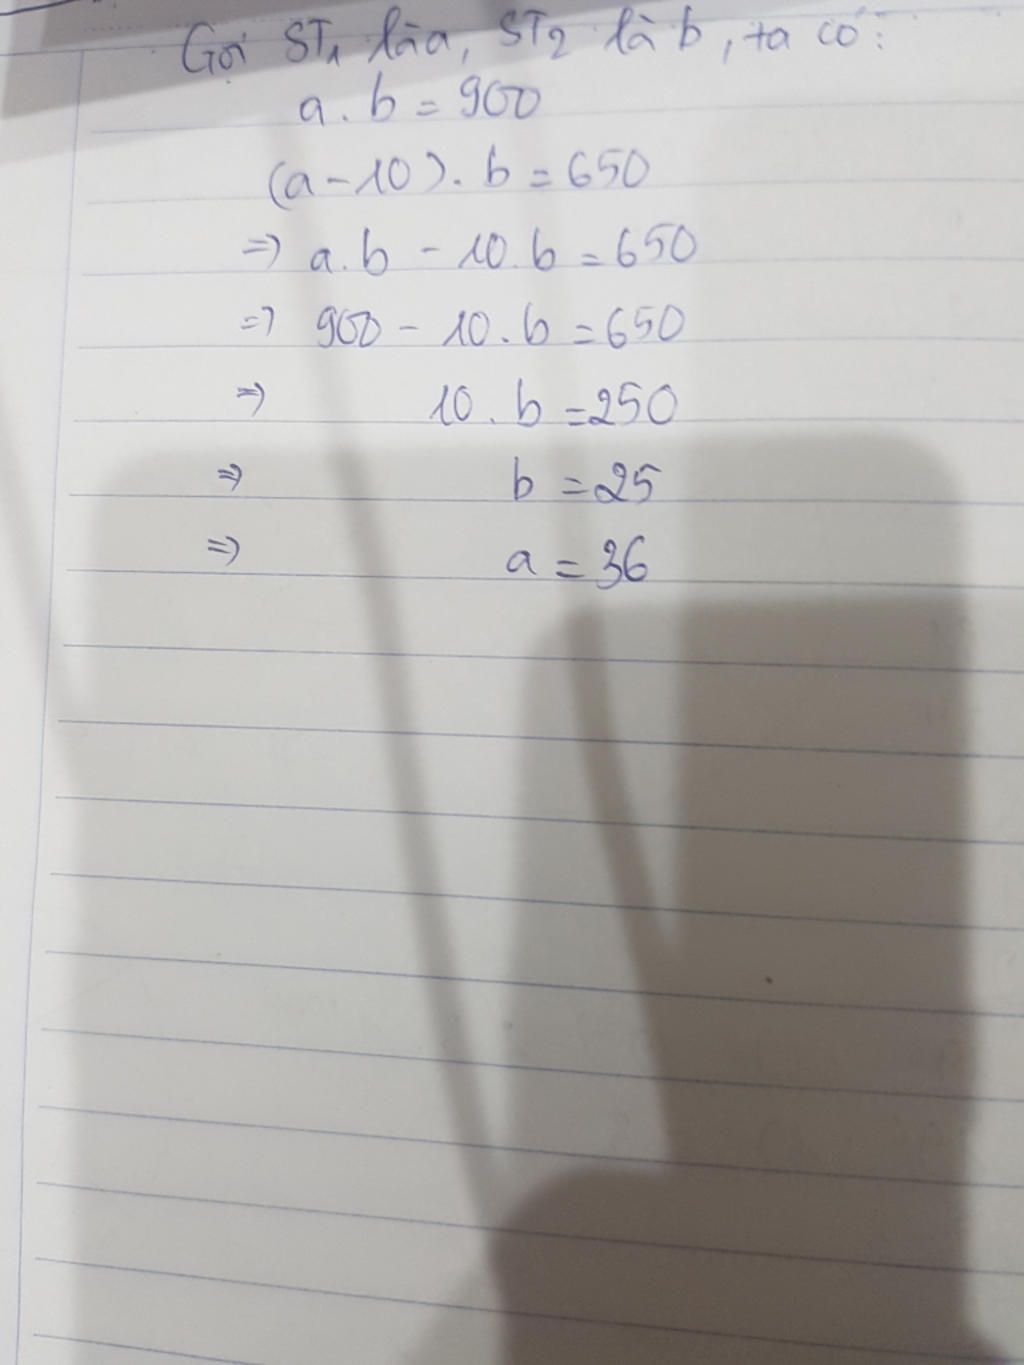 Gọi ST₁ là a, ST₂ là b, ta có:
a . b = 900
(a - 10) . b = 650
=> a . b - 10 . b = 650
=> 900 - 10 . b = 650
=> 10 . b = 250
=> b = 25
=> a = 36